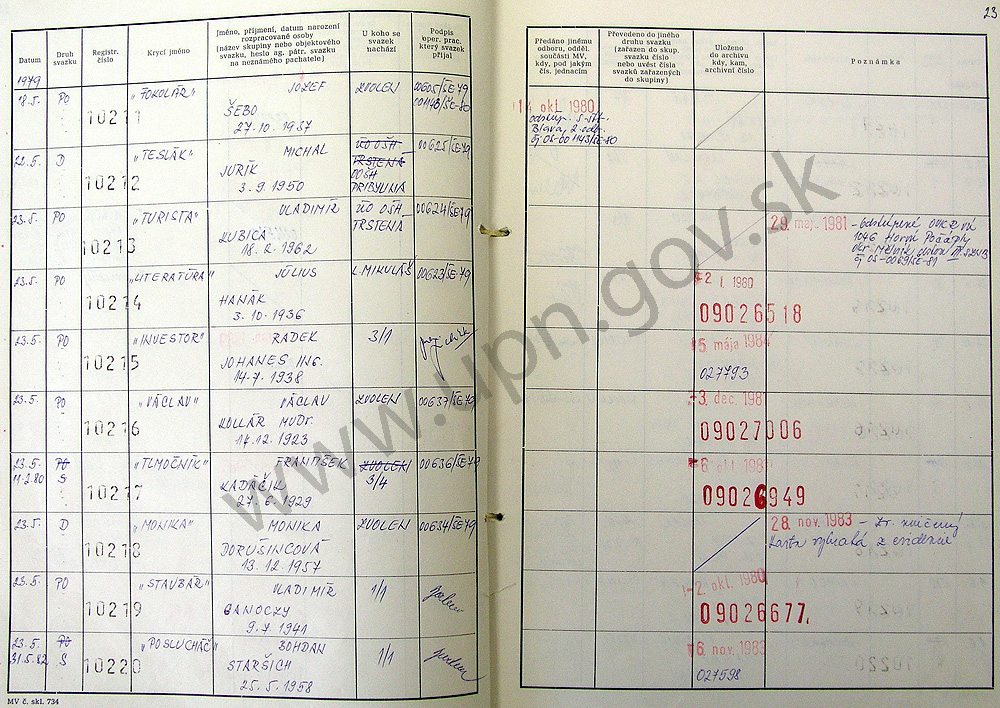 23
Datum
Druh
svazku
Registr.
číslo
Krycí jméno
Jméno, příjmení, datum narození
rozpracované osoby
(název skupiny nebo objektového
svazku, heslo ag. pátr. svazku
na neznámého pachatele)
U koho se
svazek
nachází
Podpis
oper. prac.
který svazek
přijal
Předáno jinému
odboru, odděl.
součásti MV,
kdy, pod jakým
čís. jednacím
Převedeno do jiného
druhu svazku
(zařazen do skup.
svazku číslo
nebo uvést čísla
svazků zařazených
do skupiny)
Uloženo
do archivu
kdy, kam,
archivní číslo
Poznámka
1979
18.5. PO 10211 "FOKOLÁR" JOZEF ZVOLEN 00605/ŠE-79
ŠEBO
27.10.1937
14. okt. 1980
22.5. D 10212 "TESLÁK" MICHAL ÚO OŠH 00625/ŠE-79
JURÍK TRSTENÁ
3.9.1950 OOŠH
PRIBYLINA
23.5. PO 10213 "TURISTA" VLADIMÍR ÚO OŠH 00624/ŠE-79
KUBICA TRSTENÁ
18.2.1962
29. maj. 1981
1046 Horní Počáply
23.5. PO 10214 "LITERATÚRA" JÚLIUS L. MIKULÁŠ 00623/ŠE-79
HANÁK
3.10.1936
2. 1. 1980
09026518
23.5. PO 10215 "INVESTOR" RADEK 3/1
JOHANES ING.
14.7.1938
5. mája 1984
027793
23.5. PO 10216 "VÁCLAV" VÁCLAV ZVOLEN 00637/ŠE-79
KOLLÁR MUDr.
17.12.1923
-3. dec. 198
09027006
23.5. PO 10217 "TLMOČNÍK" FRANTIŠEK ZVOLEN 00636/ŠE-79
11.2.80 S KADÁČIK 3/4
27.6.1929
6. okt. 198
09026949
23.5. D 10218 "MONIKA" MONIKA ZVOLEN 00634/ŠE-79
DORUŠINCOVÁ
13.12.1957
28. nov. 1983 - Zr. zničený
karta vybratá z evidencie
23.5. PO 10219 "STAVBÁR" VLADIMÍR 1/1
GANOCZY
9.7.1941
-2. okt. 1980
09026677
23.5. PO 10220 "POSLUCHÁČ" BOHDAN 1/1
31.5.82 S STARŠICH
25.5.1958
6. nov. 1983
027598
MV č. skl. 734
www.upn.gov.sk